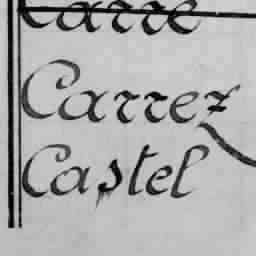 Carre
Carrez
Castel